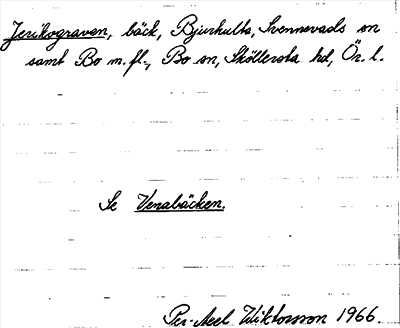 Jerikograven, bäck, Bjurhulta, Svennevads sn
samt Bo m.fl., Bo sn, Sköllersta hd, Ör. l.
Se Venabäcken.
Per-Axel Wiktorsson 1966.